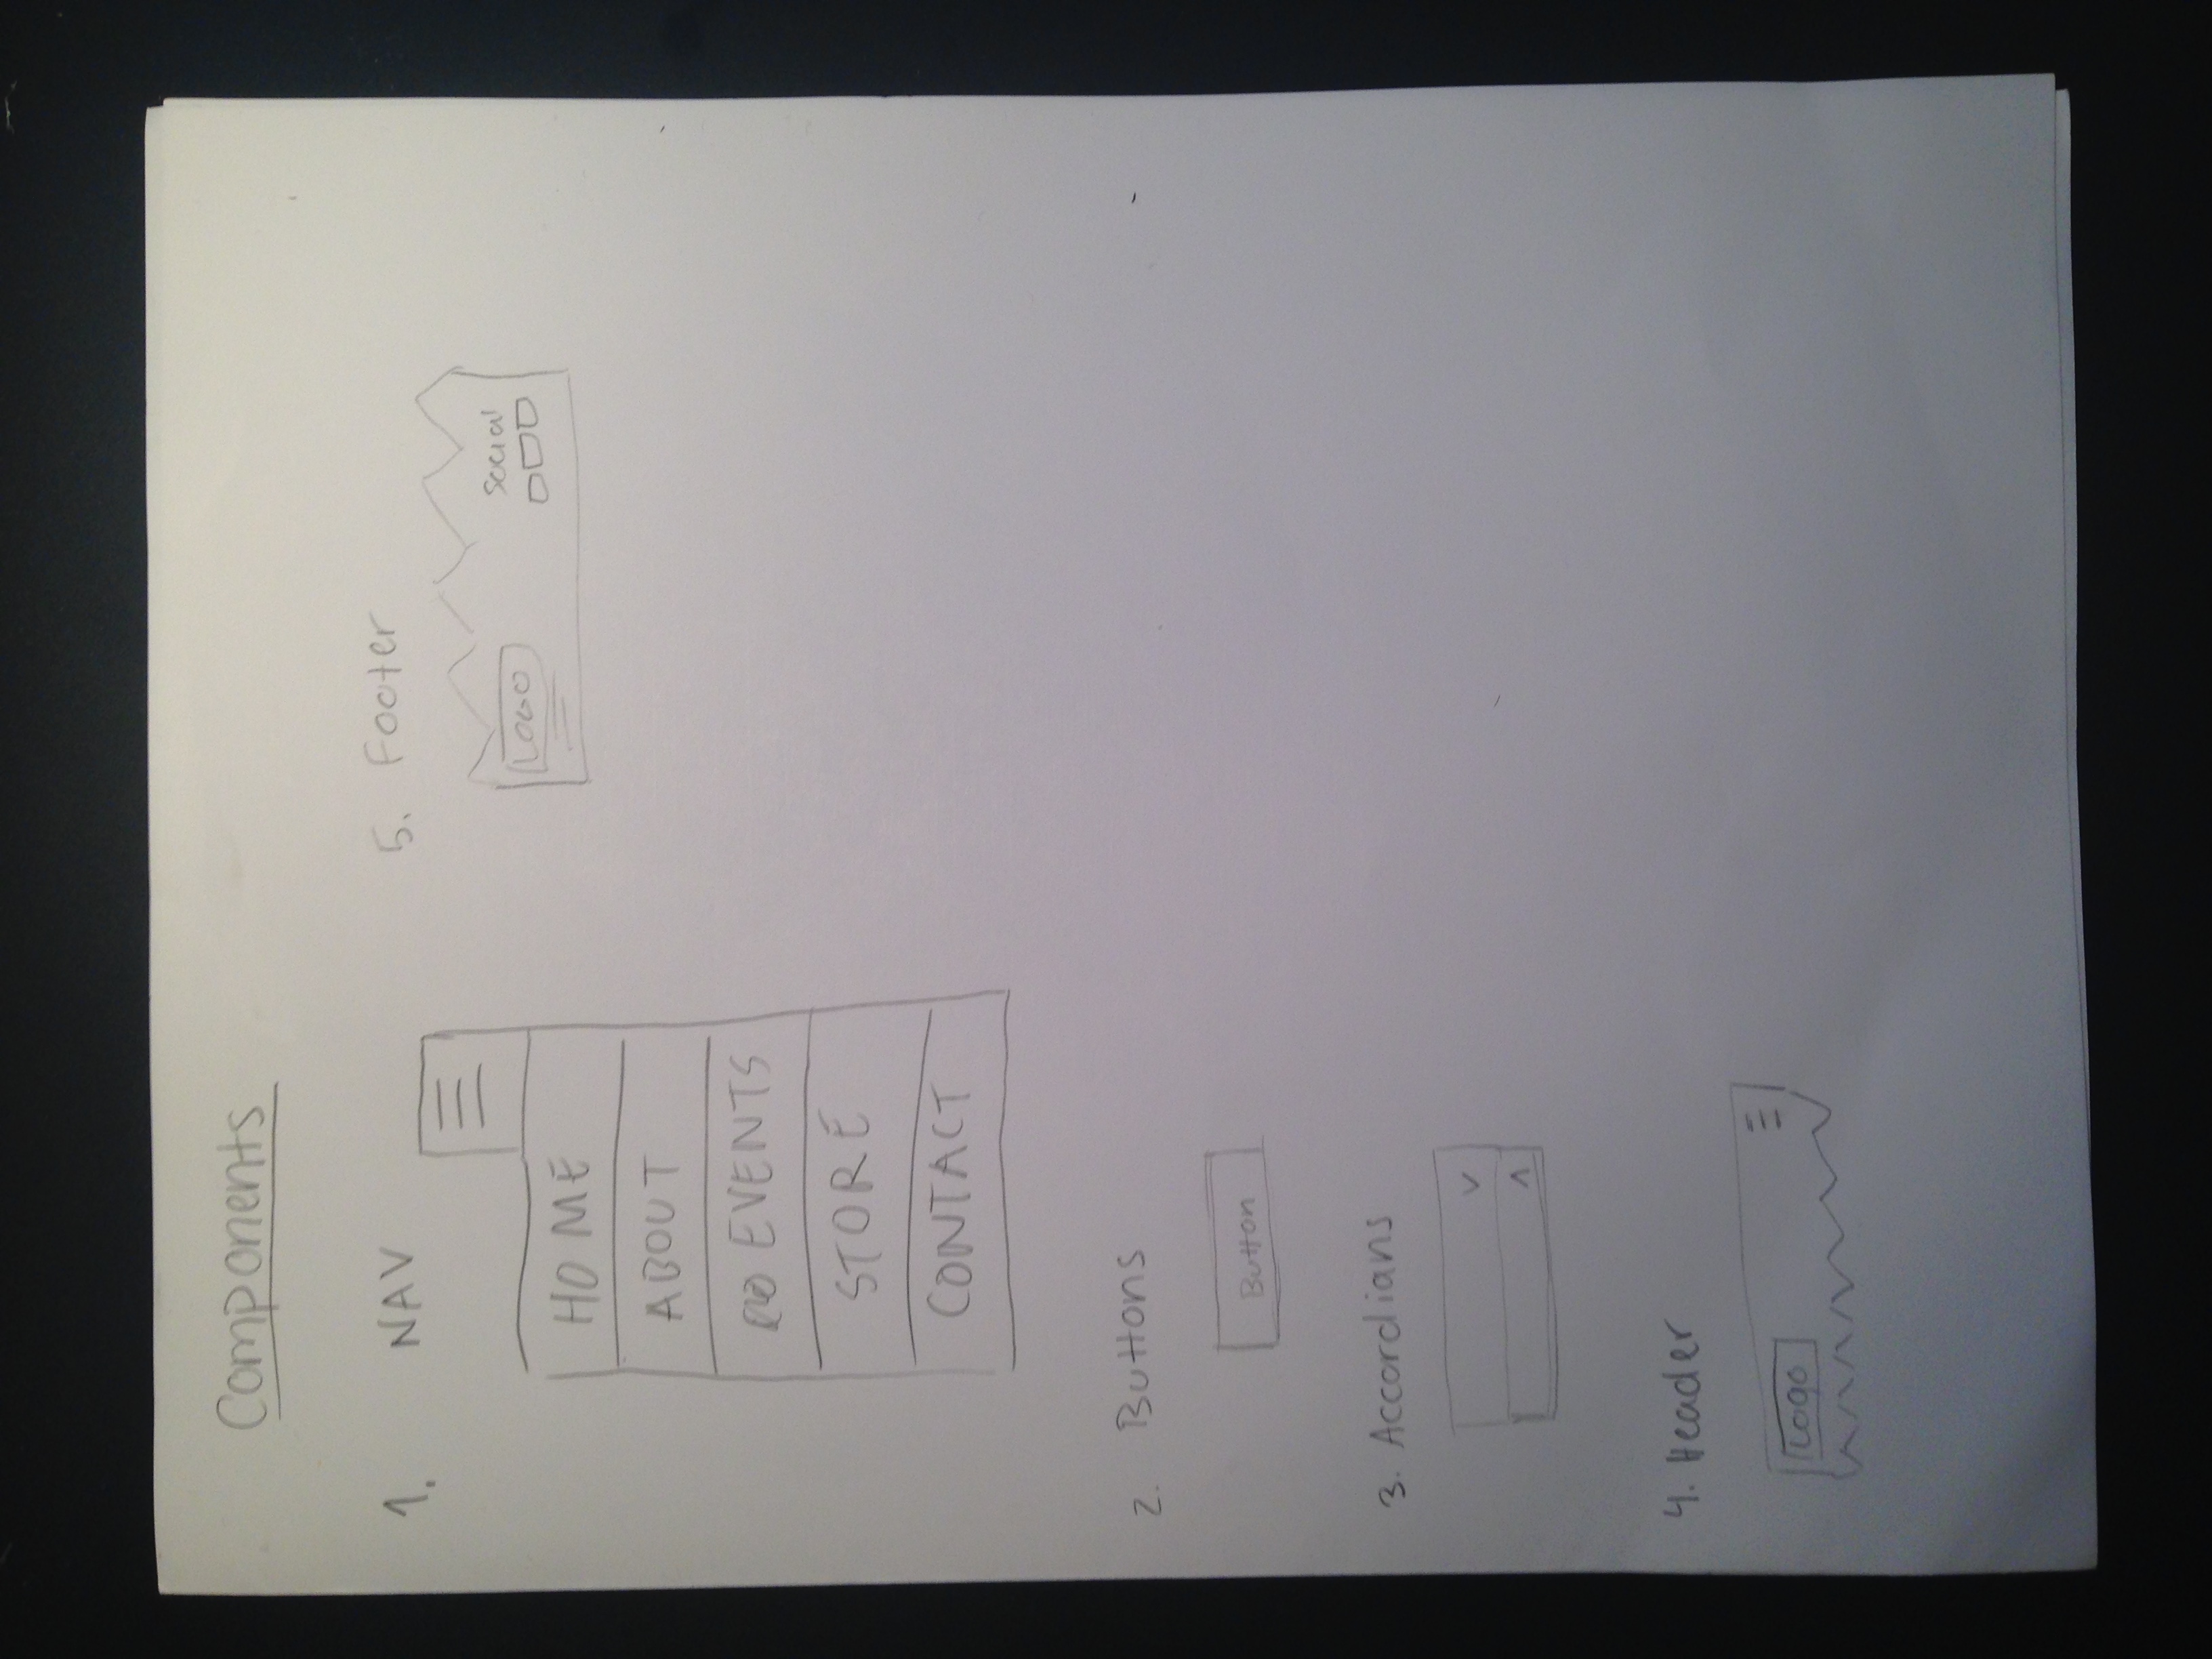 Components
1. NAV
HOME
ABOUT
EVENTS
STORE
CONTACT
2. Buttons
Button
3. Accordians
4. Header
Logo
5. Footer
LOGO
Social